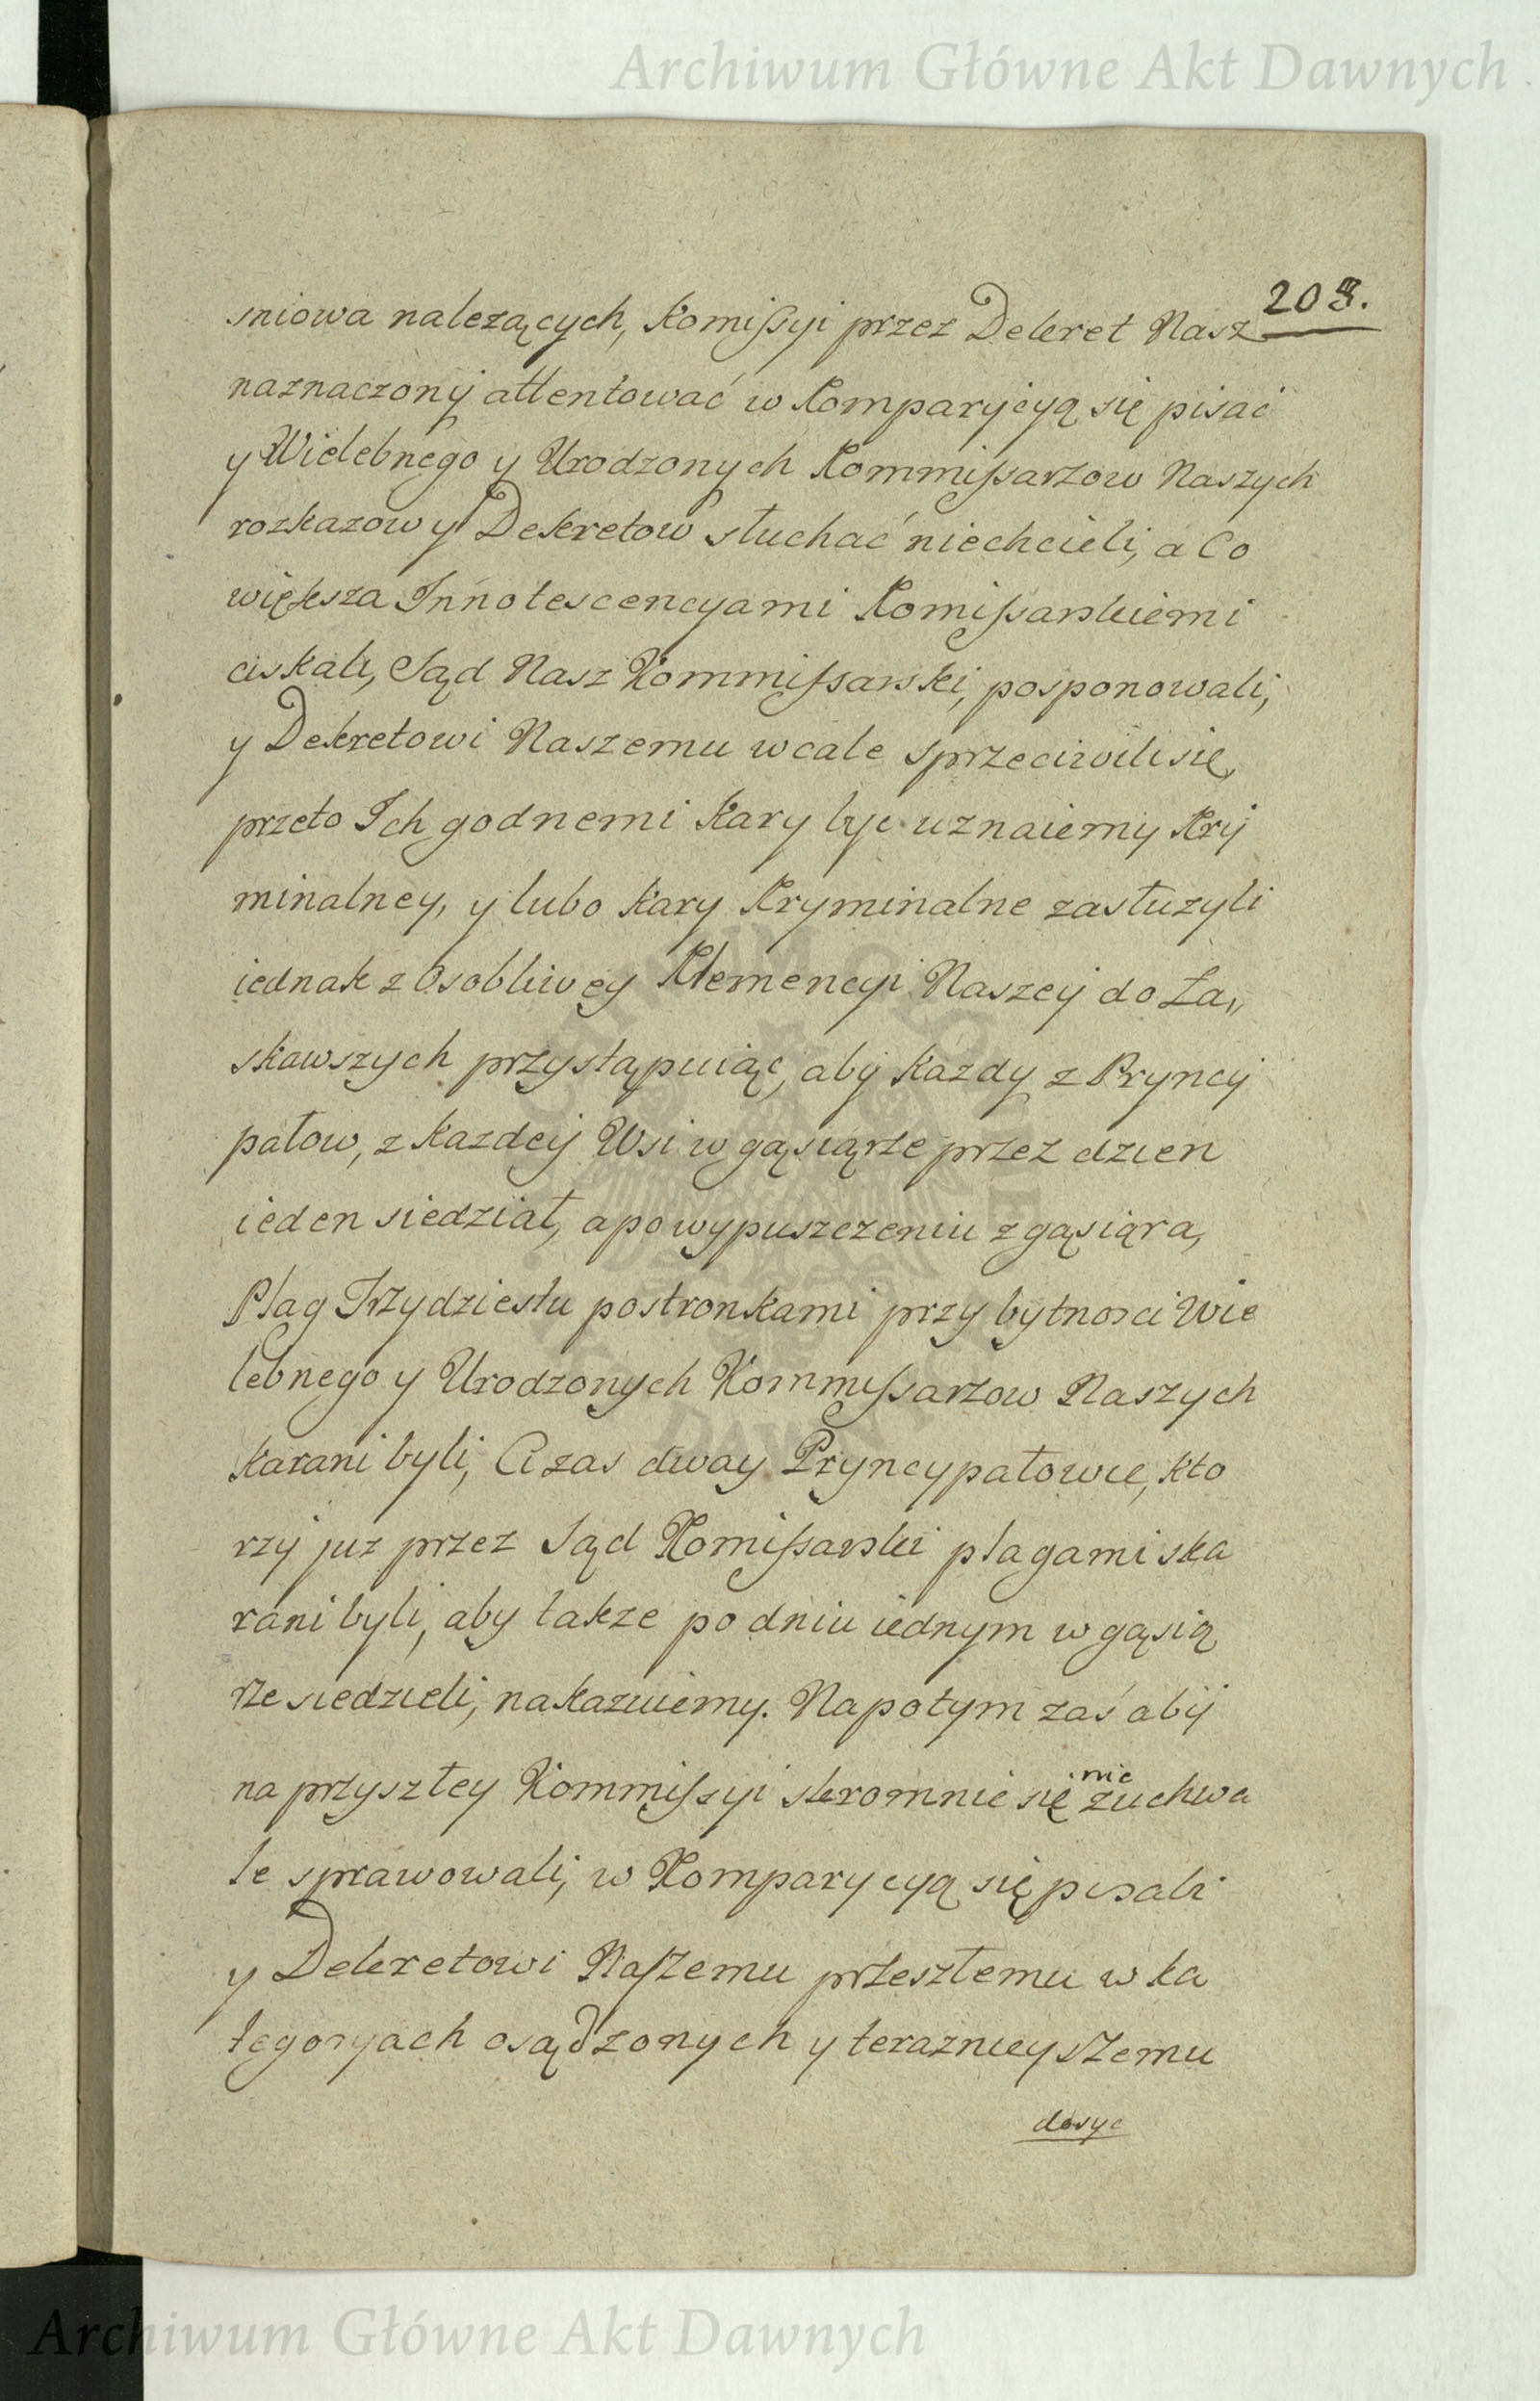 Archiwum Główne Akt Dawnych
203.
sniowa nalezących, Komissyi przez Dekret Nasz
naznaczony attentować w Komparycyą się pisać
y Wielebnego y Urodzonych Kommissarzow Naszych
rozkazow y Dekretow słuchać niechcieli, a Co
większa Innotescencyami Komissarskiemi
ciskali, Sąd Nasz Kommissarski, posponowali,
y Dekretowi Naszemu wcale sprzeciwili się,
przeto Ich godnemi Kary byc uznaiemy Kry
minalney, y lubo Kary Kryminalne zasłuzyli
iednak z Osobliwey Klemencyi Naszey do Ła„
skawszych przystąpuiąc, aby kazdy z Pryncy
pałow, z kazdey Wsi w gąsiąrze przez dzien
ieden siedział, a po wypuszczeniu z gąsiąra,
Plag Trzydziestu postronkami przy bytnosci Wie
lebnego y Urodzonych Kommissarzow Naszych
karani byli, A zas dway Pryncypałowie, kto
rzy juz przez Sąd Komissarski plagami ska
rani byli, aby takze po dniu iednym w gąsią
rze siedzieli, nakazuiemy. Napotym zaś aby
na przyszłey Kommissyi skromnie się nie zuchwa
le sprawowali, w Komparycyą się pisali
y Dekretowi Naszemu przeszłemu w ka
tegoryach osądzonych y teraznieyszemu
dosyc
Archiwum Główne Akt Dawnych